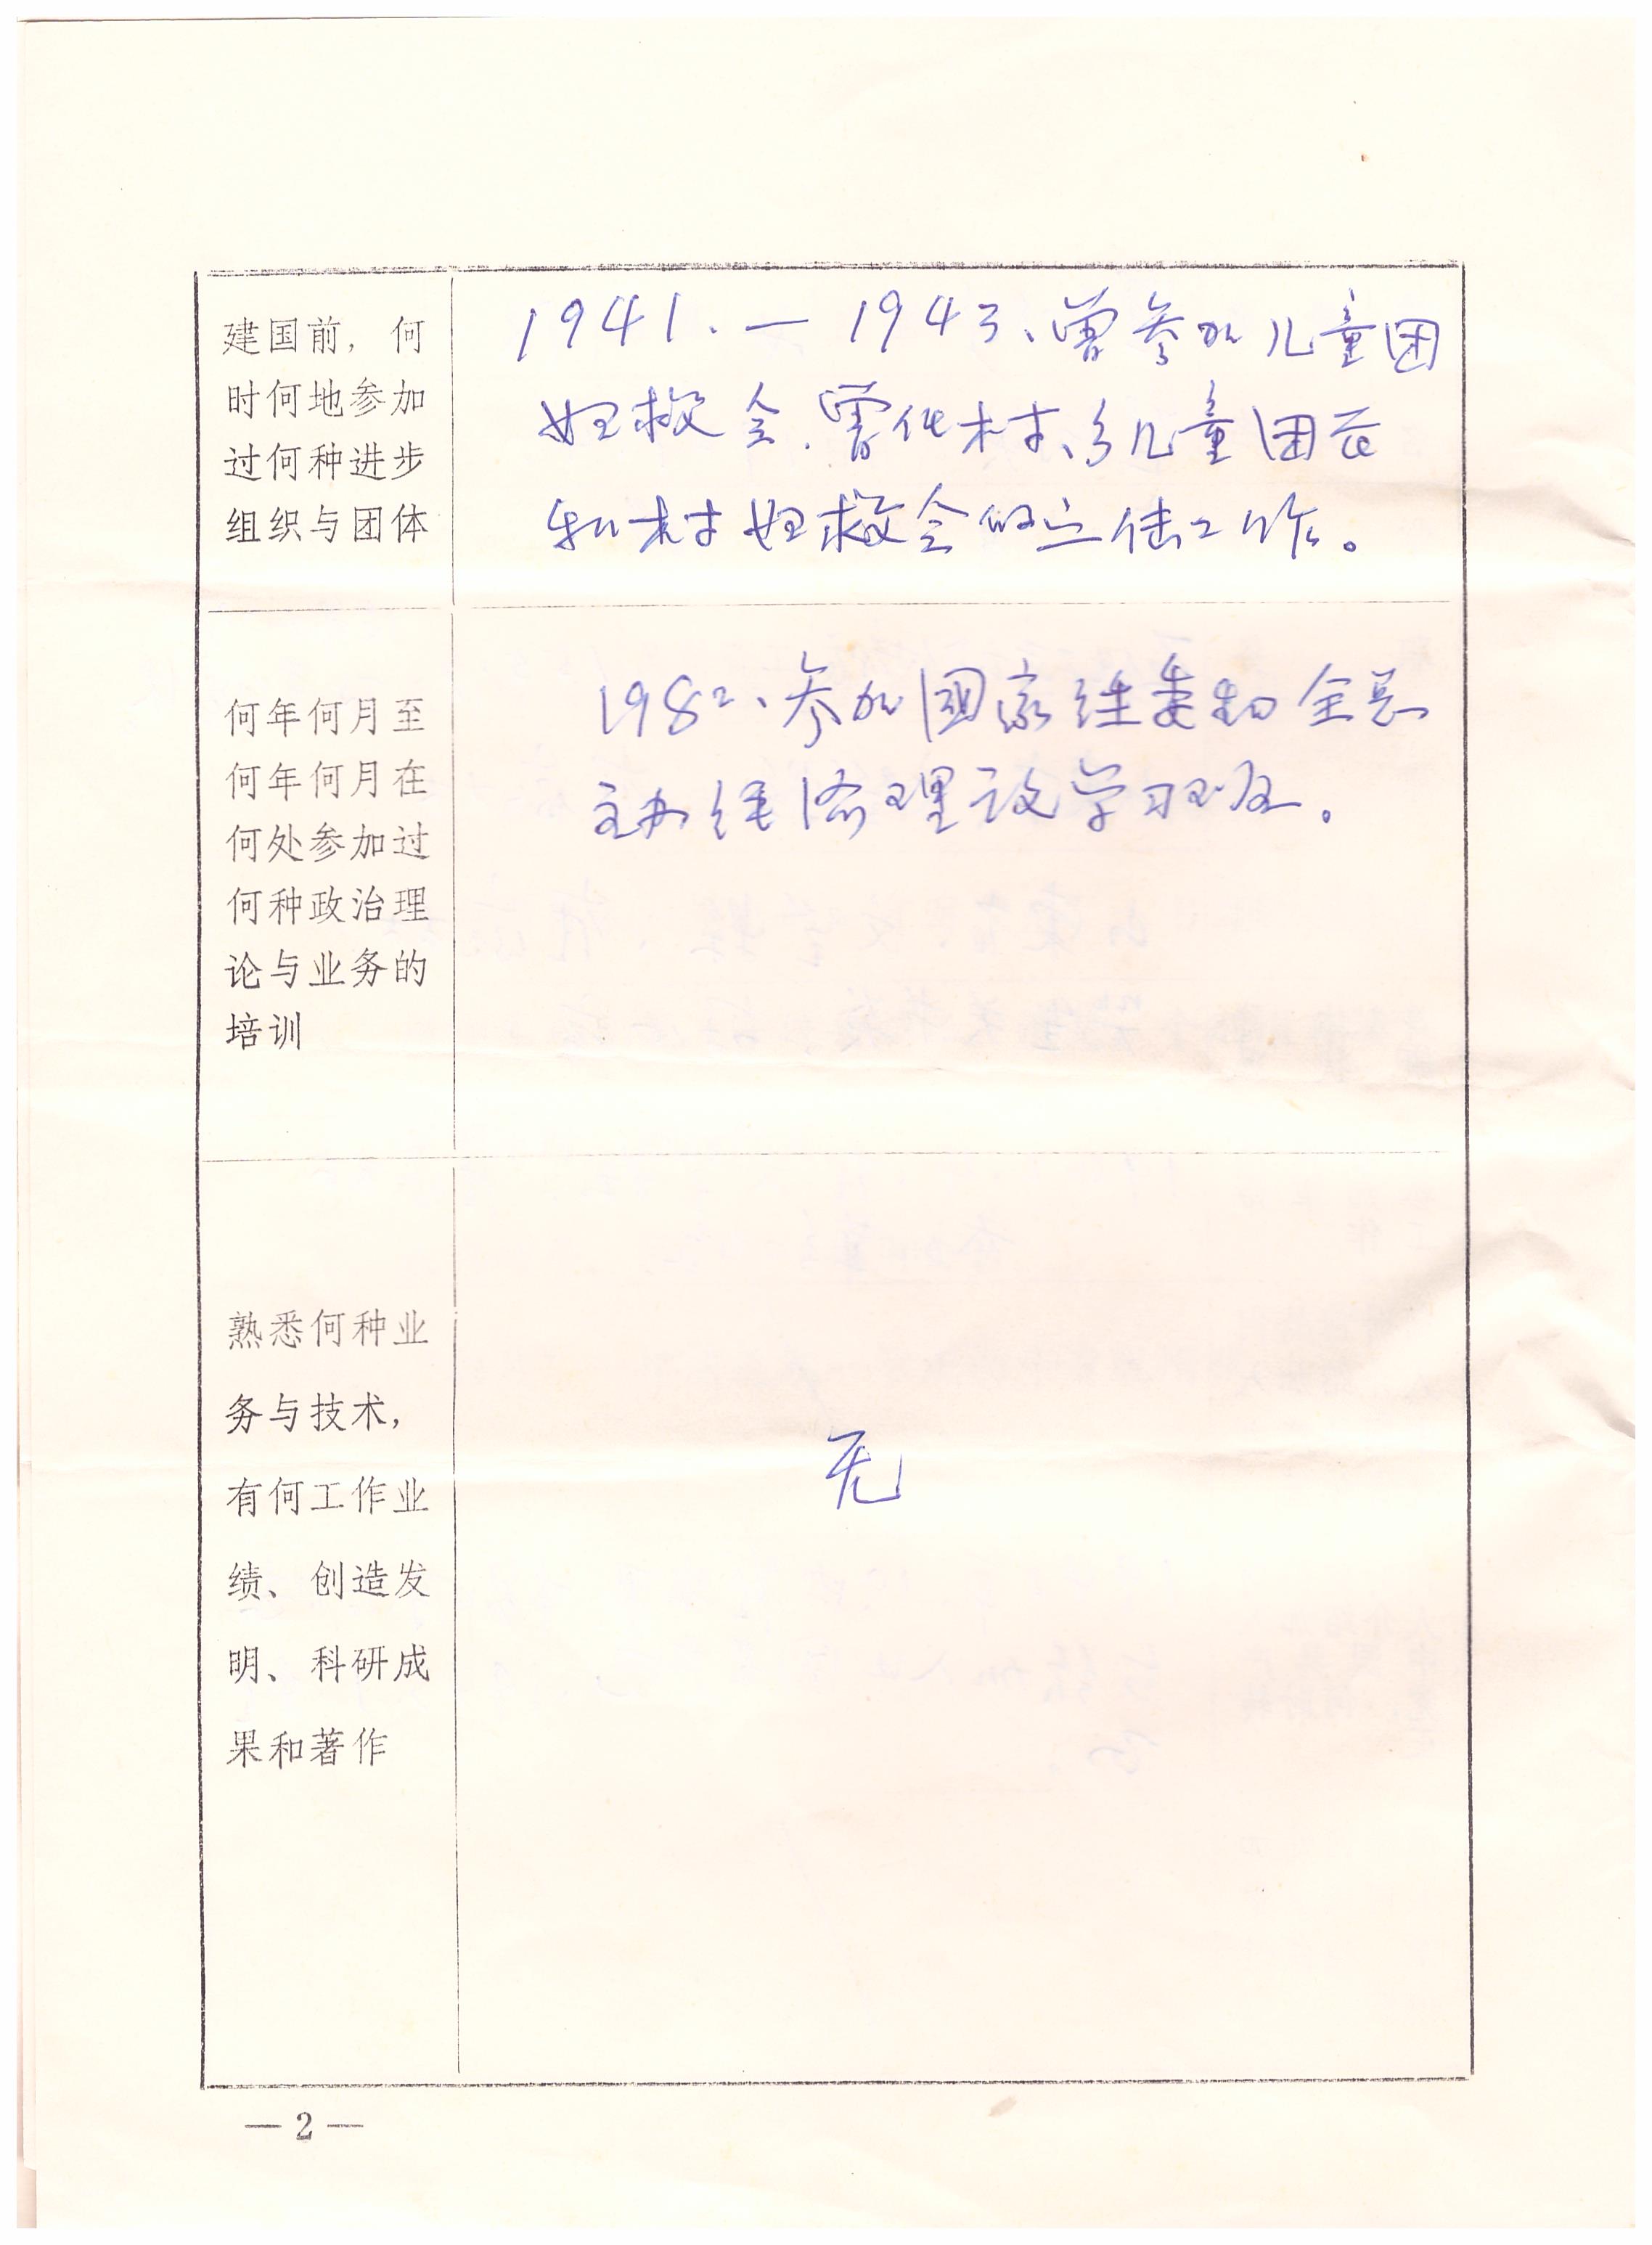 建国前，何
时何地参加
过何种进步
组织与团体
1941.—1943、曾参加儿童团
妇救会.曾任村、乡儿童团长
和村妇救会的主任工作。
何年何月至
何年何月在
何处参加过
何种政治理
论与业务的
培训
1982、参加国家经委和全总
主办经济理论学习班。
熟悉何种业
务与技术，
有何工作业
绩、创造发
明、科研成
果和著作
无
—2—